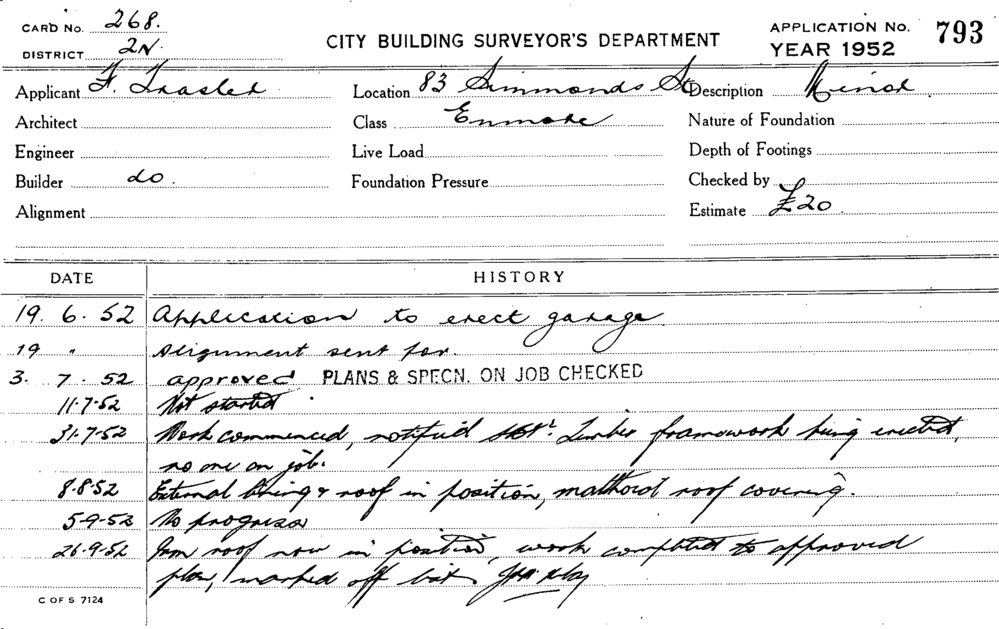 CARD No. 268.
DISTRICT 2N.
CITY BUILDING SURVEYOR'S DEPARTMENT
APPLICATION No. 793
YEAR 1952
Applicant F. Traslet Location 83 Simmonds St Description Minor
Architect Class Enmore Nature of Foundation
Engineer Live Load Depth of Footings
Builder do. Foundation Pressure Checked by
Alignment Estimate £20.
DATE HISTORY
19. 6. 52 Application to erect garage
19 " Alignment sent for.
3. 7. 52 approved PLANS & SPECN. ON JOB CHECKED
11-7-52 Not started
31-7-52 Work commenced, notified Timber framework being erected,
no one on job.
8.8.52 External lining & roof in position, malthoid roof covering.
5-9-52 No progress
26-9-52 Iron roof now in position, work completed to approved
plan, marked off list.
C OF S 7124